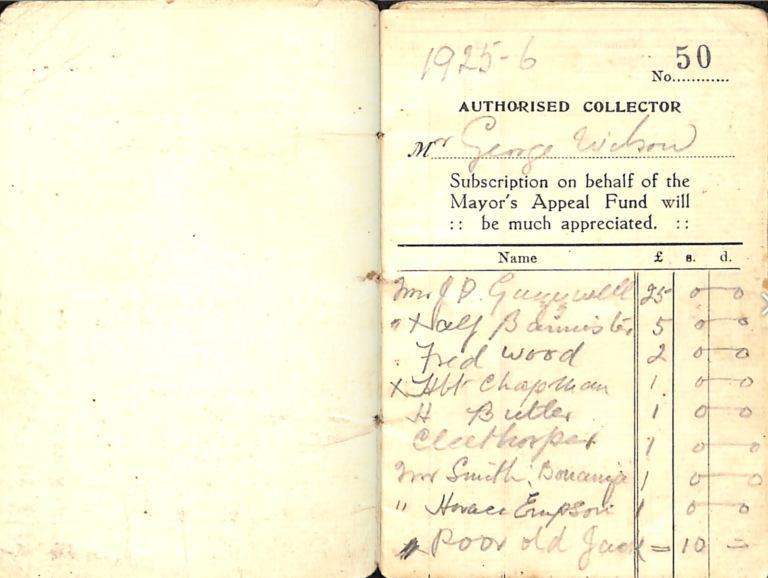 1925-6
50
No............
AUTHORISED COLLECTOR
Mr George Wilson
Subscription on behalf of the
Mayor's Appeal Fund will
:: be much appreciated. ::
Name £ s. d.
J P. 25 0 0
" X Alf Bannister 5 0 0
Fred Wood 2 0 0
X Hbt Chapman 1 0 0
H Butler 1 0 0
Cleethorpes 1 0 0
Smith, 1 0 0
" Horace Empson 1 0 0
" Poor old Jack = 10 =